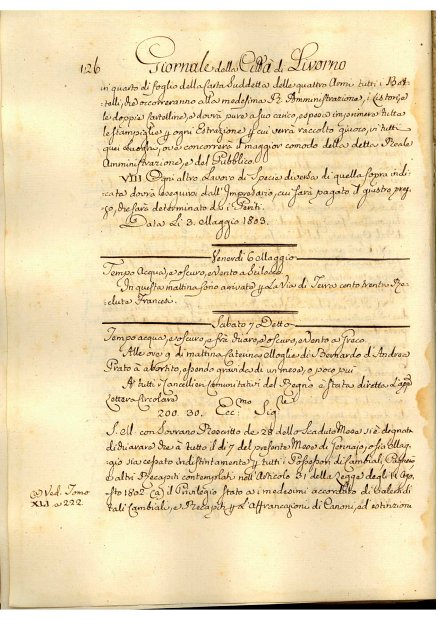 126 Giornale della Città di Livorno
in quarto di foglio della Carta suddetta delle quattro Armi tutti i Bol-
lelli, che occorreranno alla medesima Amministrazione, i
le doppie Cartelline, e dovrà pure a suo carico, e spesa imprimere tutte
le stampiglie ogni Estrazione cui verrà raccolto giuoco, in tutti
quei Luoghi, ove concorrerà il maggior comodo della detta Reale
Amministrazione, e del Pubblico.
VIII. Ogni altro Lavoro di Specie diversa di quella sopra indi-
cata dovrà eseguirsi dall'Impresario, cui sarà pagato il giusto prez-
zo, che sarà determinato da i Periti.
Data Li 3. Maggio 1803.
Venerdi 6 Maggio
Tempo Acqua, e oscuro, e vento a Scilocco
In questa mattina sono arrivate La Via di Terra cento trenta Re-
clute Francesi.
Sabato 7 Detto
Tempo acqua, e oscuro, e frà chiaro, e oscuro, e vento a Greco
Alle ore 9 di mattina Caterina Moglie di Bernardo d'Andrea
Prato à abortito, essendo gravida di un mese, o poco più
A' tutti i Cancellieri Comunitativi del Regno è stata diretta l'app.
Lettera Circolare
200. 30. Ecc.mo Sig.
S. M. con Sovrano Rescritto de' 28 dello Scaduto Mese si è degnata
di dichiarare che à tutto il di 7 del presente Mese di Gennajo, o sia Mag-
gio sia cessato indistintamente tutti i Possessori di Cambiali,
o altri Recapiti contemplati nell'Articolo 31 della Legge degli 11 Ago-
sto 1802 (a) il Privilegio stato a i medesimi accordato di valersi di
tali Cambiali, e Recapiti l'Affrancazioni di Canoni, ed estinzioni
(a) Ved. Tomo
XLI a 222.